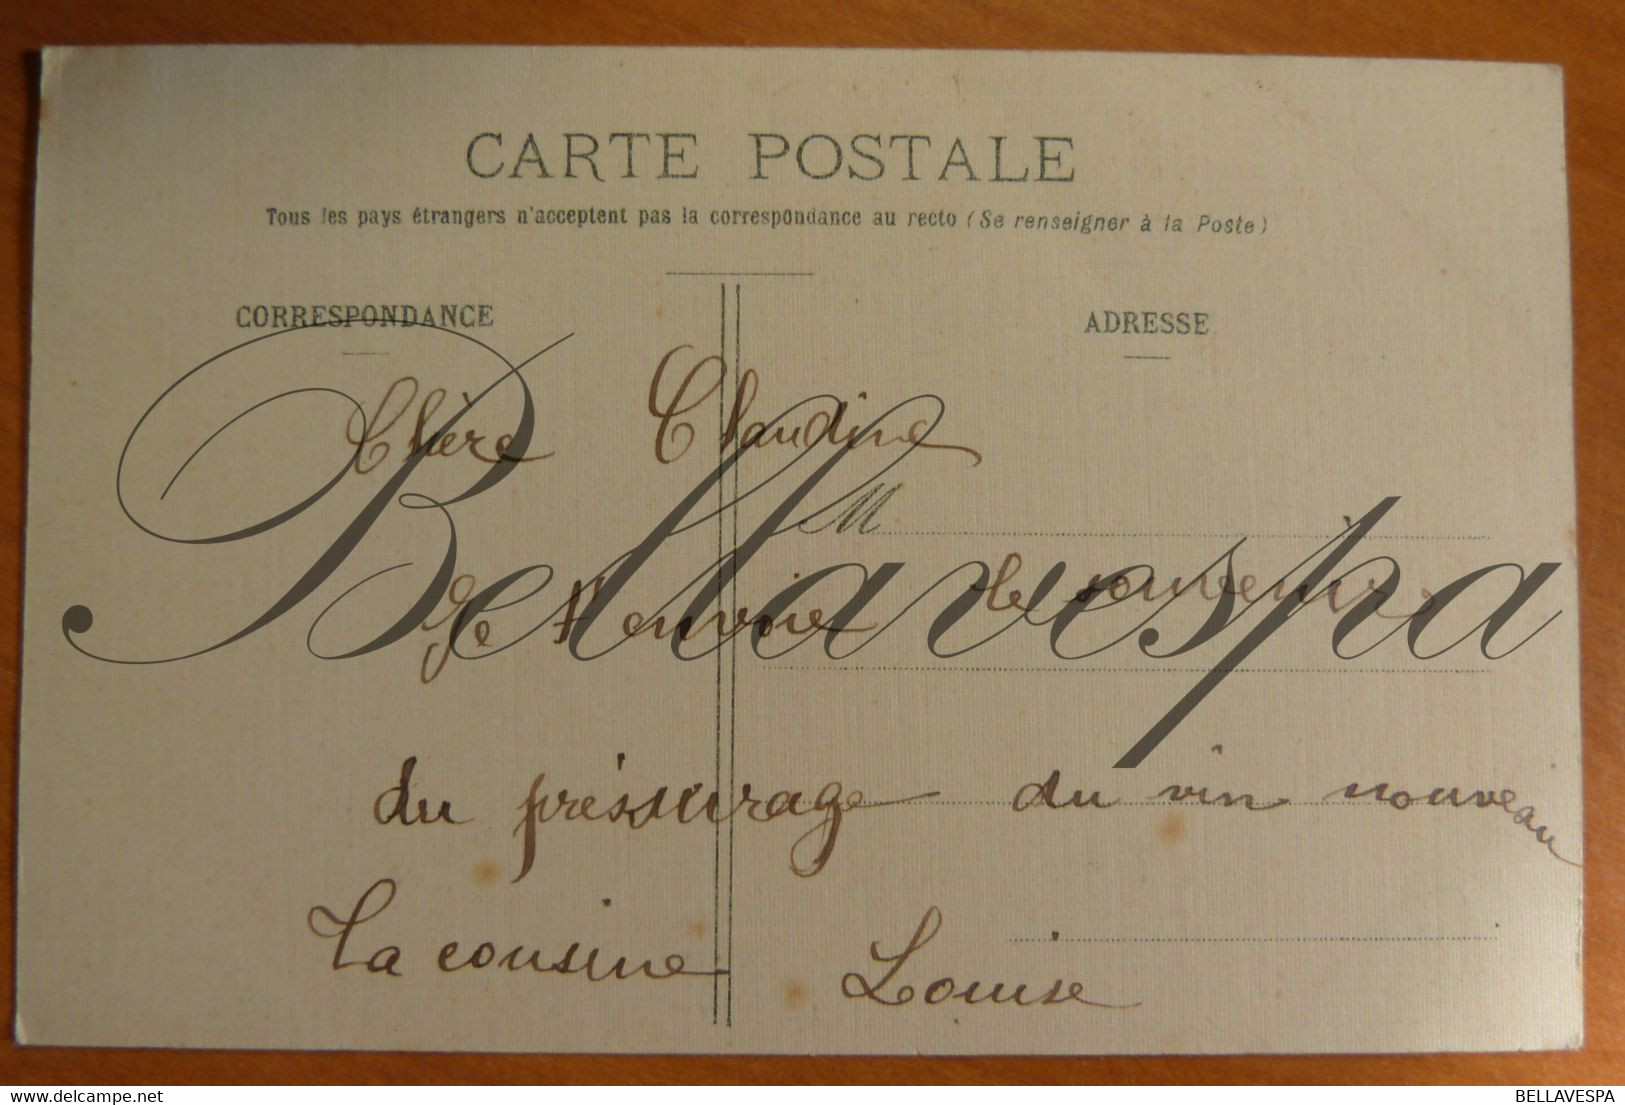 CARTE POSTALE
Tous les pays étrangers n'acceptent pas la correspondance au recto (Se renseigner à la Poste)
CORRESPONDANCE
ADRESSE
Chère Claudine
M
Je t'envoie le souvenir
du préssurage du vin nouveau
Ta cousine Louise
Bellavespa
BELLAVESPA